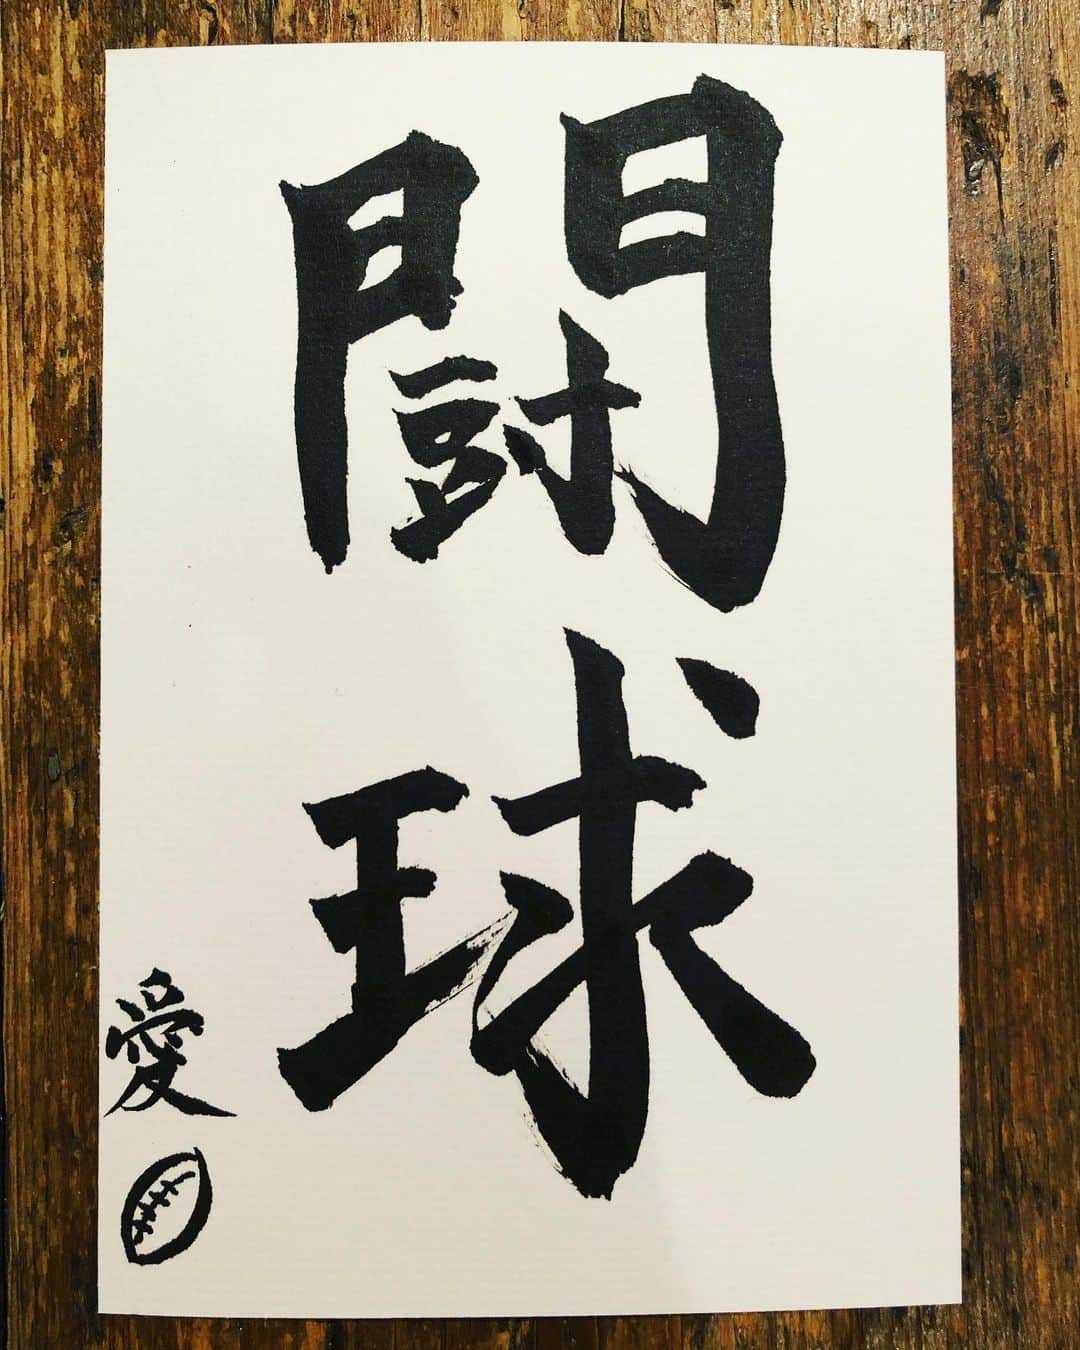 闘球
愛